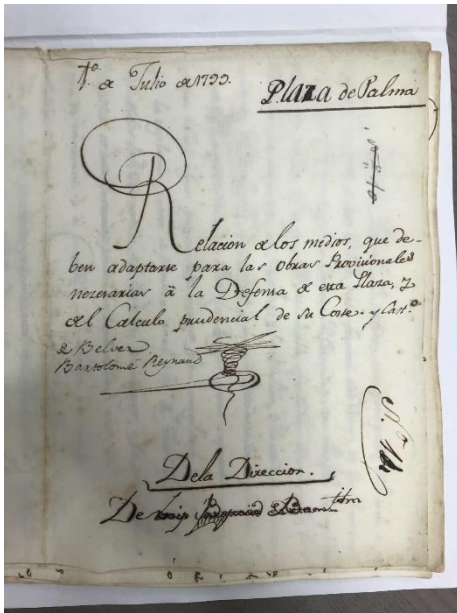 1º. de Julio de 1799.
Plaza de Palma
Relacion de los medios, que de-
ben adaptarse para las Obras Provicionales
nezesarias â la Defensa de esta Plaza, y
del Calculo prudencial de su Coste. y Cast.º
de Belver
Bartolomé Reynaud
Dela Direccion.
De